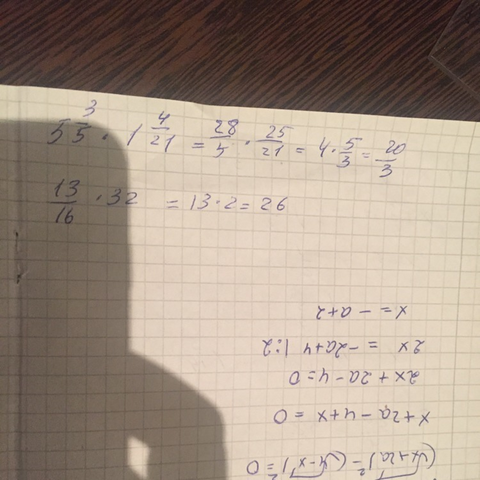 5 3/5 · 1 4/21 = 28/5 · 25/21 = 4 · 5/3 = 20/3
13/16 · 32 = 13 · 2 = 26
(√x+2a)² - (√4-x)² = 0
x + 2a - 4 + x = 0
2x + 2a - 4 = 0
2x = -2a + 4 | : 2
x = -a + 2